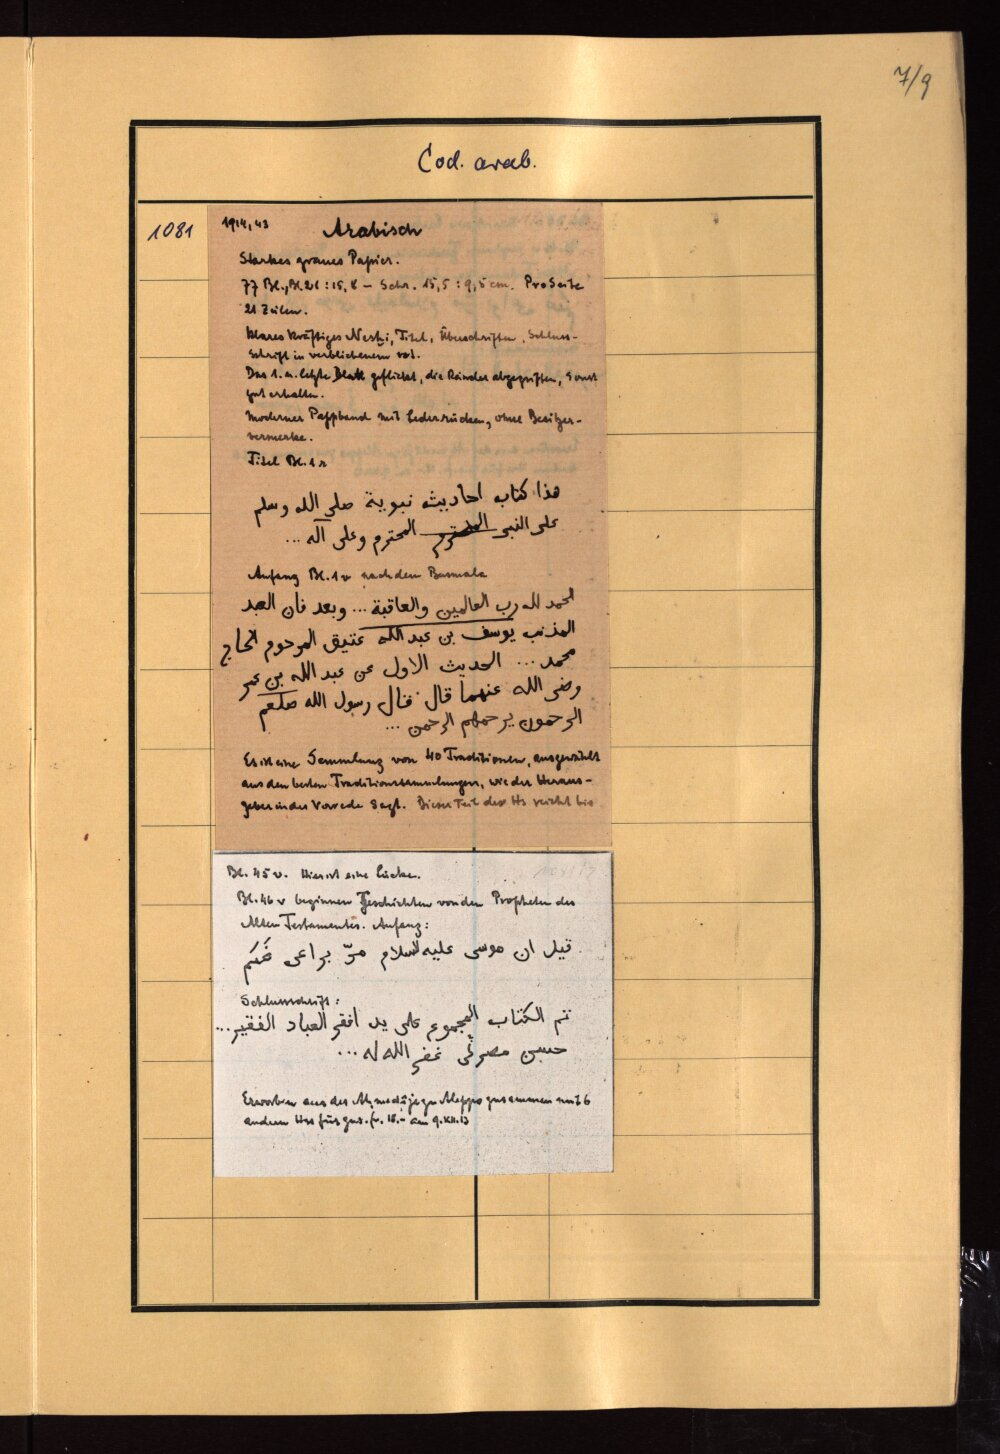 7/9
Cod. arab.
1081
1914,43 Arabisch
Starkes graues Papier.
77 Bl., Bl. 21 : 15,8 – Schr. 15,5 : 9,5 cm. Pro Seite
21 Zeilen.
Klares kräftiges Neshi, Titel, Überschriften, Schluss-
schrift in verblichenem rot.
Das 1. u. letzte Blatt geflickt, die Ränder abgegriffen, sonst
gut erhalten.
Moderner Pappband mit Lederrücken, ohne Besitzer-
vermerke.
Titel Bl. 1r
هذا كتاب احاديث نبوية صلى الله وسلم
على النبى المحترم وعلى آله ...
Anfang Bl. 1v nach dem Basmala
الحمد لله رب العالمين والعاقبة ... وبعد فان العبد
المذنب يوسف بن عبد الله عتيق المرحوم الحاج
محمد ... الحديث الاول عن عبد الله بن عمر
رضى الله عنهما قال قال رسول الله صلعم
الرحمون يرحمهم الرحمن ...
Es ist eine Sammlung von 40 Traditionen, ausgewählt
aus den besten Traditionssammlungen, wie der Heraus-
geber in der Vorrede sagt. Dieser Teil der Hs reicht bis
Bl. 45v. Hier ist eine Lücke.
Bl. 46v beginnen Geschichten von den Propheten des
Alten Testamentes. Anfang:
قيل ان موسى عليه السلام مرّ براعى غنم
Schlussschrift:
تم الكتاب المجموع على يد افقر العباد الفقير ...
حسن مصرلى غفر الله له ...
Erworben aus der Ahmedije zu Aleppo zusammen mit 6
andern Hss für zus. fr. 18.– am 9.XII.13